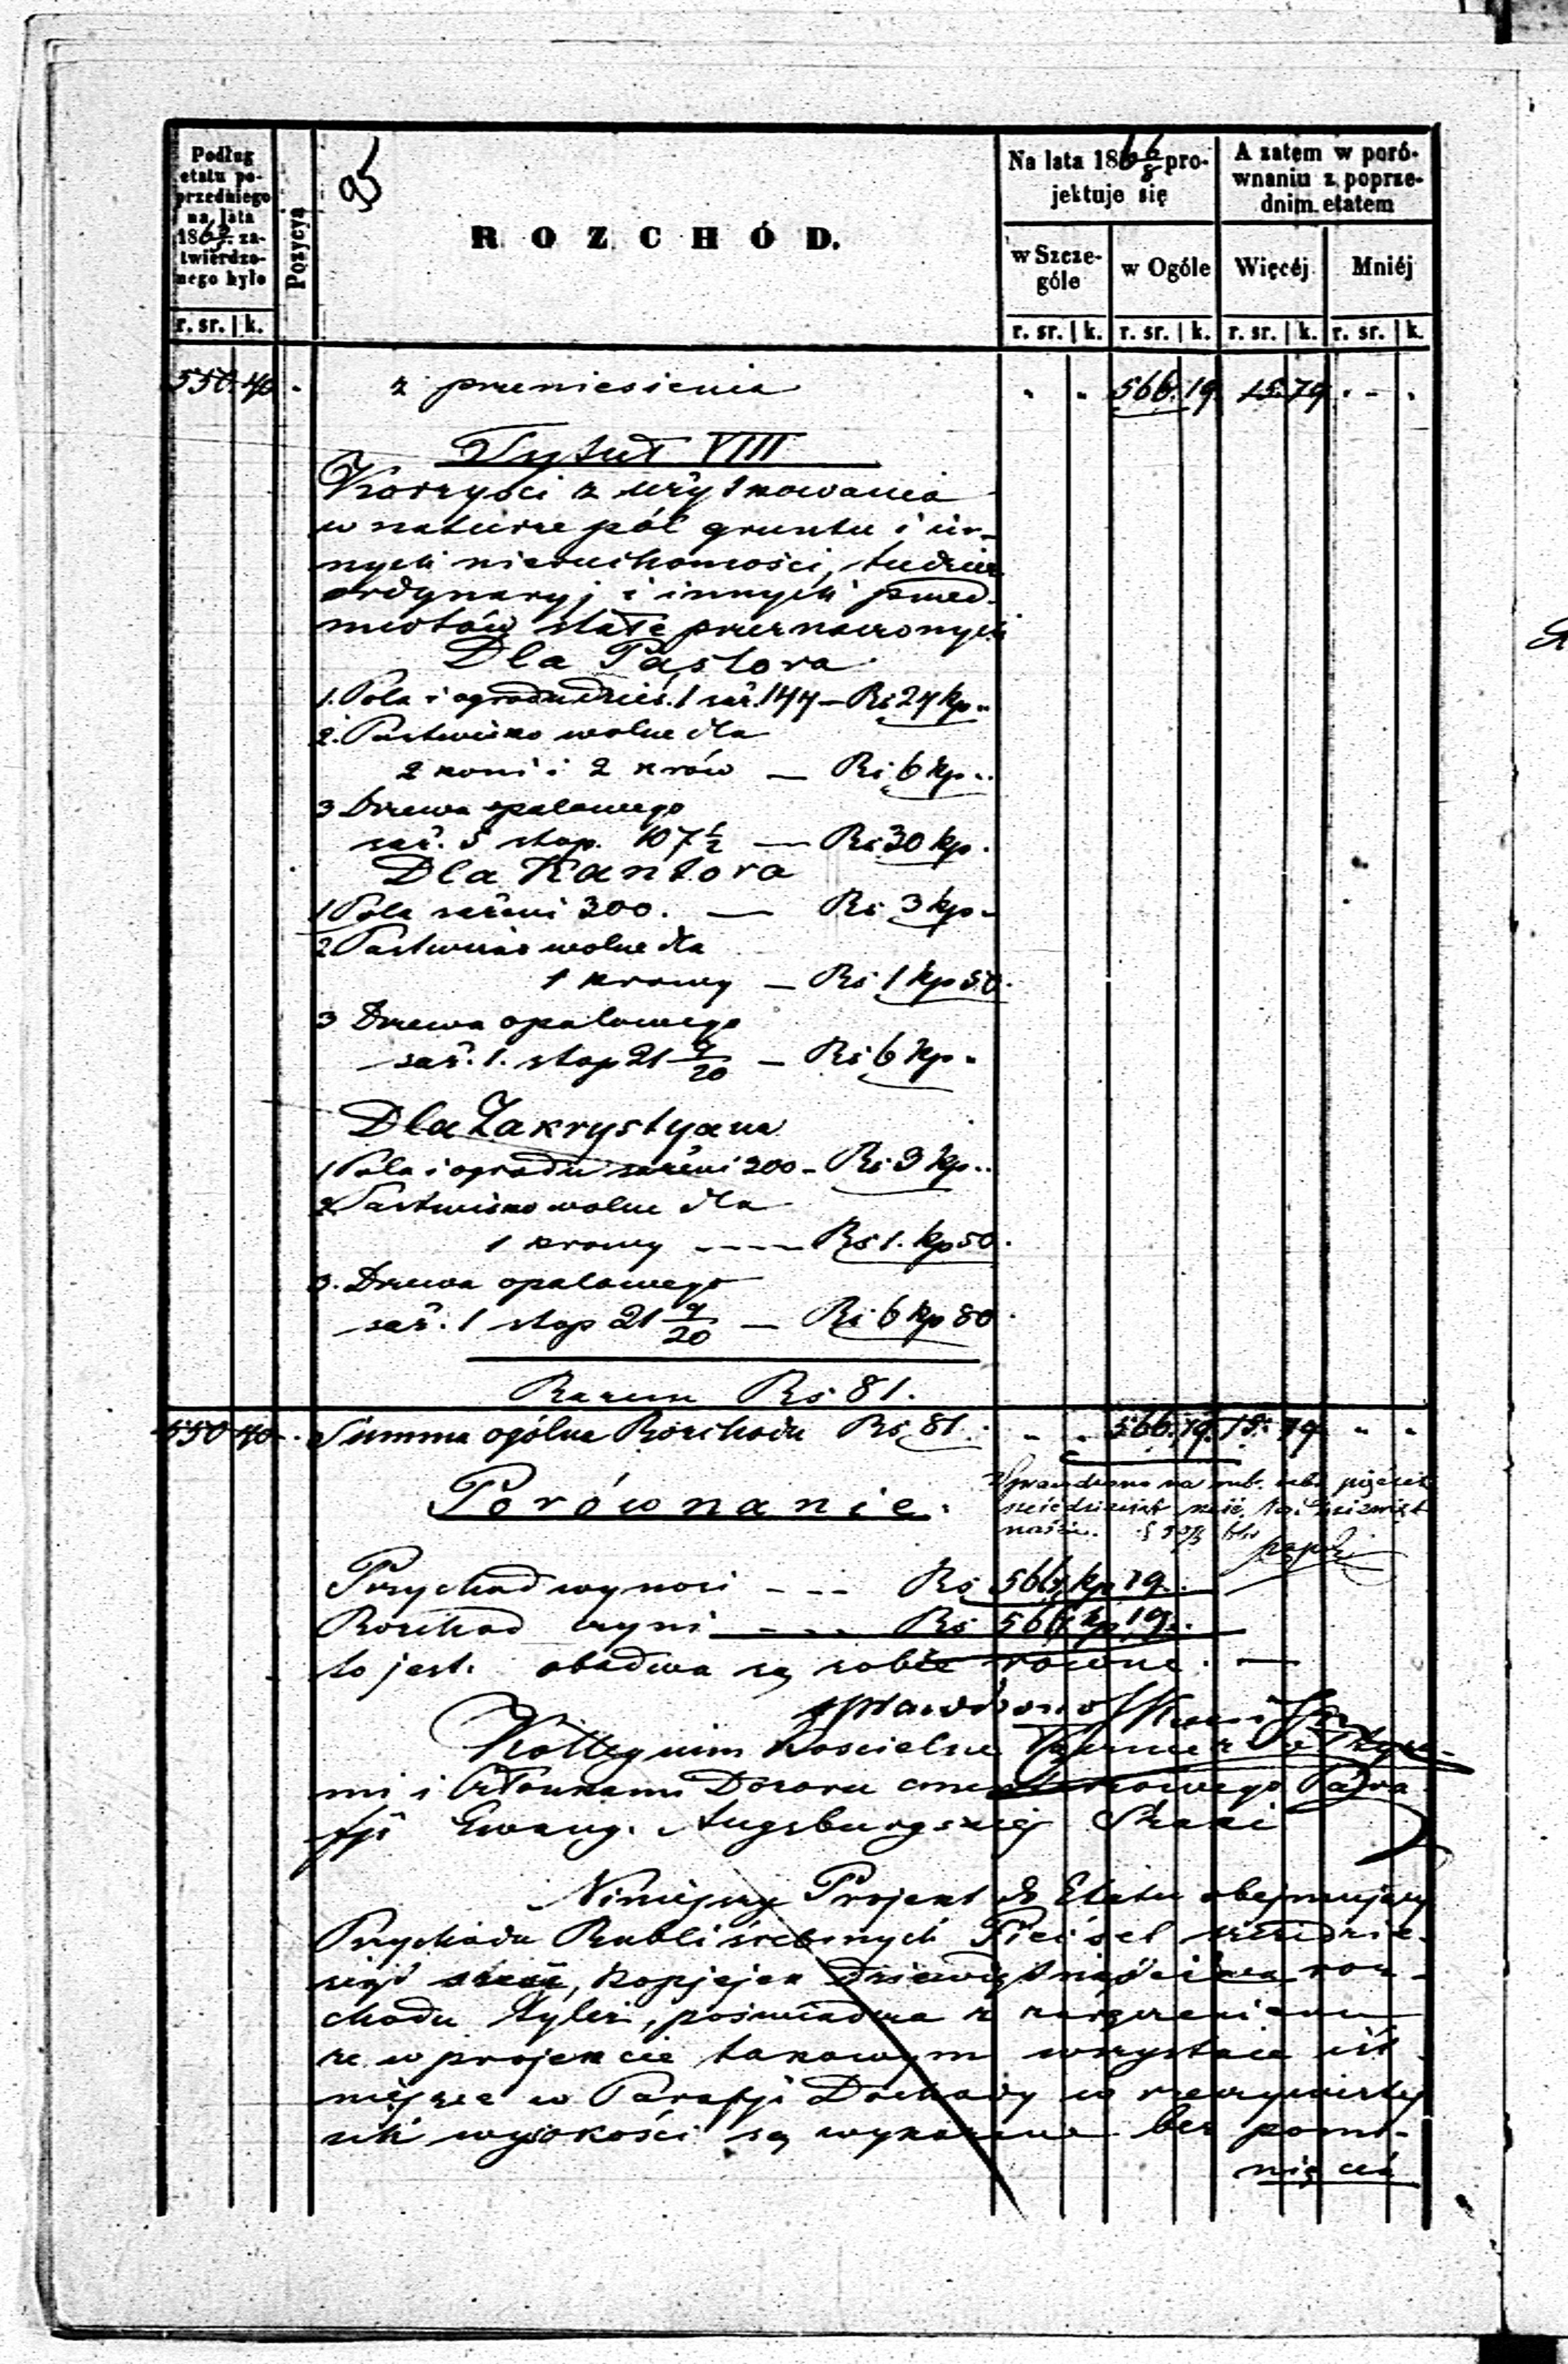 95
Podług etatu poprzedniego na lata 186 zatwierdzonego było
Pozycya
ROZCHÓD.
Na lata 186 6/8 projektuje się
A zatem w porównaniu z poprzednim etatem
w Szczególe
w Ogóle
Więcéj
Mniéj
r. sr. | k.
r. sr. | k. r. sr. | k. r. sr. | k. r. sr. | k.
550. 40 z przeniesienia 566. 19 15. 79
Tytuł VIII
Korzyści z użytkowania
w naturze pól gruntu i in-
nych nieruchomości, tudzież
ordynaryj i innych przed-
miotów stałe przeznaczonych
Dla Pastora
1. Pola i ogrodu dzies. 1 saż. 144 — Rs 24 kp "
2. Pastwisko wolne dla
2 koni i 2 krów — Rs 6 kp "
3 Drzewa opałowego
saż. 5 stop. 107 1/2 — Rs 30 kp.
Dla Kantora
1 Pola sażeni 300. — Rs 3 kp "
2 Pastwisko wolne dla
1 krowy — Rs 1 kp 50.
3 Drzewa opałowego
saż. 1. stop 21 9/20 — Rs 6 kp "
Dla Zakrystyana
1 Pola i ogrodu sażeni 200 - Rs 3 kp "
2 Pastwisko wolne dla
1 krowy ---- Rs 1. kp 50.
3. Drzewa opałowego
saż. 1 stop 21 9/20 — Rs 6 kp
Razem Rs 81.
550 40 Summa ogólna Rozchodu Rs 81. 566. 19. 15. 79 " "
Porównanie.
Przychod wynosi --- Rs 566 kp 19.
Rozchod czyni ---- Rs 566 kp 19.
to jest: obadwa są sobie równe. —
sprawdzono
Kollegium Kościelne
mi i Członkami Dozoru Para-
fji Ewang. Augsburgskiej
Niniejszy Projekt do Etatu obejmujący
Przychodu Rubli śrebrnych Pięćset sześćdzie-
siąt sześć, kopjejek dziewiętnaście roz-
chodu tyleż, poświadcza z
że w projekcie takowym wszystkie ist-
niejące w Parafji Dochody w rzeczywistej
ich wysokości są wykazane bez pomi-
nięcia